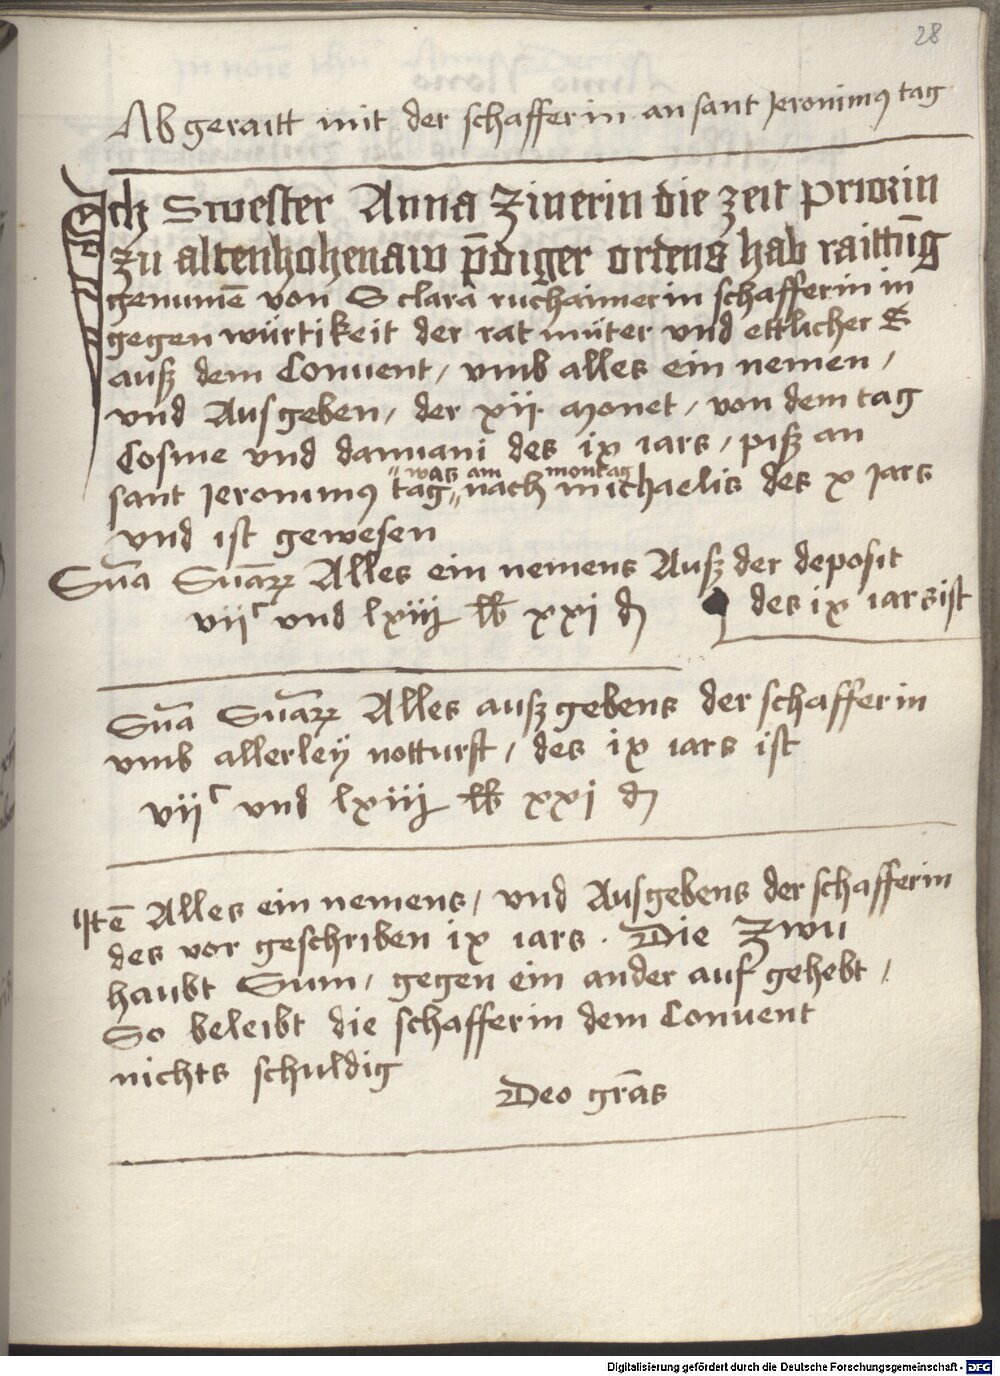 28
Ab geraitt mit der schafferin an sant Jeronimꝰ tag
Ich Swester Anna Zinerin die zeit priorin
zu altenhohenaw p̄diger ordens hab raittūg
genumē von S clara ruchaimerin schafferin in
gegenwürtikeit der rat müter vnd ettlicher
auſz dem Conuent / vmb alles ein nemen /
vnd Ausgeben / der xij. monet / von dem tag
Cosme vnd damiani des ix iars / piſz an
was am montag
sant Jeronimꝰ tag nach michaelis des x Jars
vnd ist gewesen
Sūa Sūarꝝ Alles ein nemens Auſz der deposit
des ix iars ist
vijᶜ vnd lxiij lb xxj d
Sūa Sūarꝝ Alles auſzgebens der schafferin
vmb allerley notturft / des ix iars ist
vijᶜ vnd lxiij lb xxj d
Itē Alles ein nemens / vnd Ausgebens der schafferin
des vor geschriben ix iars . Die Zwu
haubt Sum / gegen ein ander auf gehebt /
So beleibt die schafferin dem Conuent
nichts schuldig
Deo gr̄as
Digitalisierung gefördert durch die Deutsche Forschungsgemeinschaft - DFG